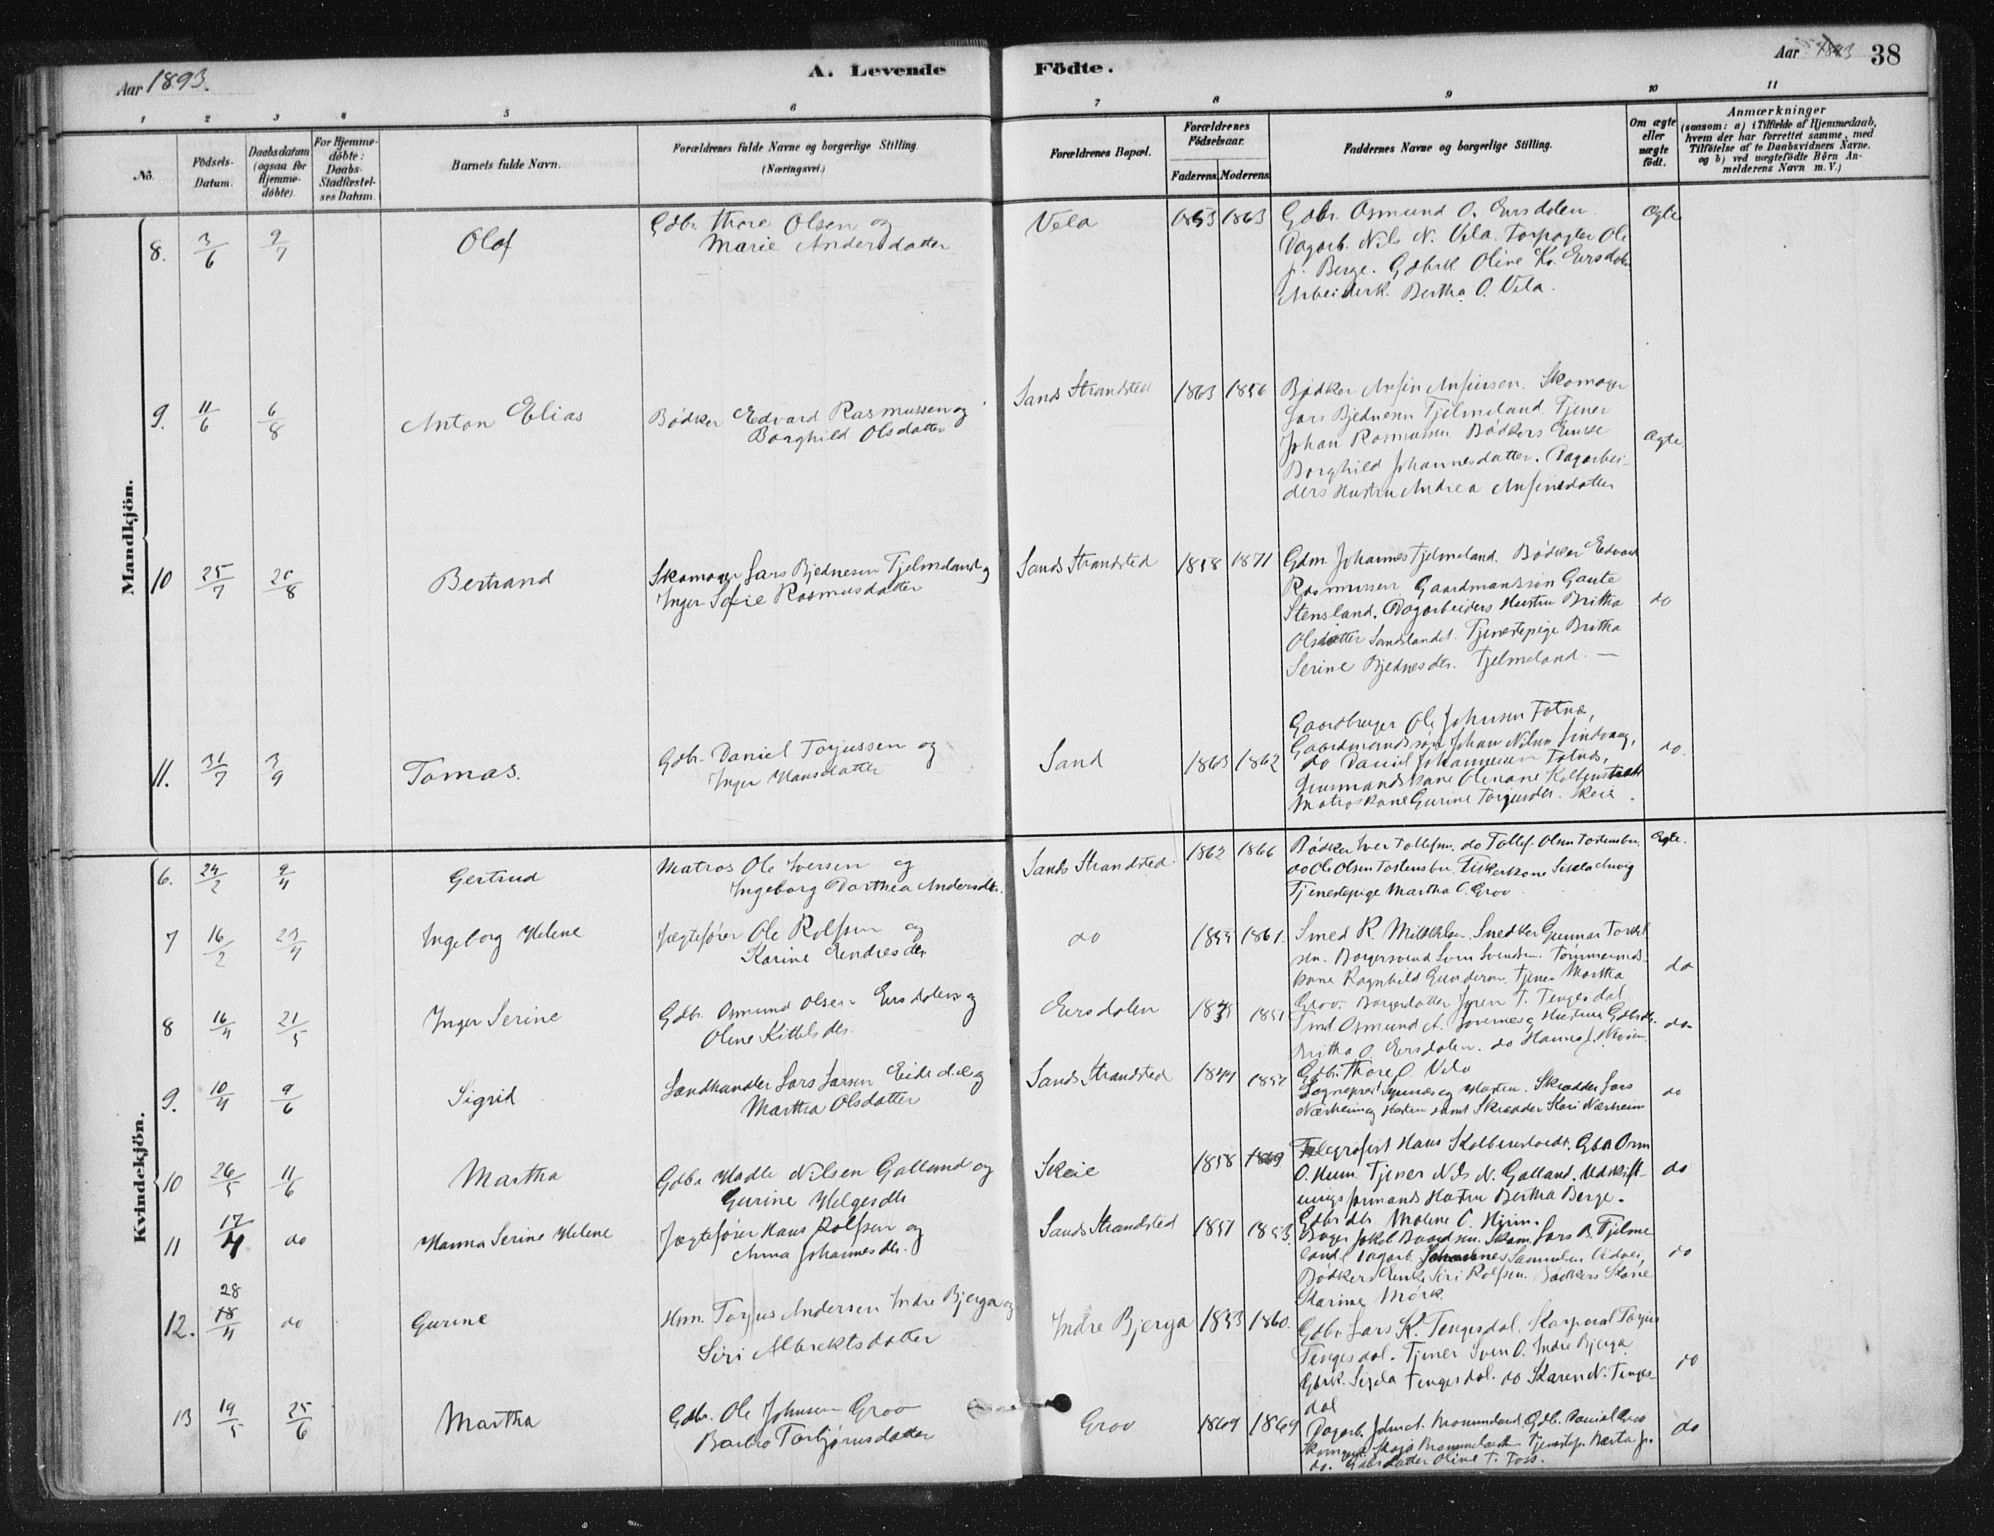 Aar 1893.
A. Levende Födte.
Aar 1893
38
1 2 3 4 5 6 7 8 9 10 11
No.
Födsels-Datum.
Daabsdatum (ogsaa for Hjemme-döbte)
For Hjemme-döbte: Daabs-Stadfæstel-ses Datum.
Barnets fulde Navn.
Forældrenes fulde Navne og borgerlige Stilling.
(Næringsvei.)
Forældrenes Bopæl.
Forældrenes Födselsaar.
Faderens. Moderens.
Faddernes Navne og borgerlige Stilling.
Om ægte eller uægte födt.
Anmærkninger
(saasom: a) i Tilfælde af Hjemmedaab, hvem der har forrettet samme, med Tilföielse af to Daabsvidners Navne. og b) ved uægtefödte Börn An-melderens Navn m. V.)
Mandkjön.
8. 3/6 9/7 Olaf
Gdbr. Thore Olsen og
Marie Andersdatter
Vela 1853 1863
Gdbr. Osmund O. Eersdalen
Dagarb. Nils N. Vela. Forpagter Ole
J. Berge. Gdbrk Oline K. Eersdalen
Arbeiderk. Bertha O. Vela.
Ægte
9. 11/6 6/8 Anton Elias
Bødker Edvard Rasmussen og
Borghild Olsdatter
Sands Strandsted 1863 1856
Bødker Anfin Anfinsen. Skomager
Lars Bjednesen Tjelmeland. Tjener
Johan Rasmussen Bødkers Enke
Borghild Johannesdatter. Dagarbei-
ders Hustru Andrea Anfinsdatter
Ægte
10 25/7 20/8 Bertrand
Skomager Lars Bjednesen Tjelmeland og
Inger Sofie Rasmusdatter
Sands Strandsted 1858 1871
Gdm. Johannes Tjelmeland. Bødker Edvard
Rasmussen Gaardmandssøn Gaute
Stensland. Dagarbeiders Hustru Britha
Olsdatter Sandslandet. Tjenestepige Britha
Serine Bjednesdtr. Tjelmeland. —
do
11. 31/7 3/9 Tomas.
Gdbr. Daniel Torjussen og
Inger Hansdatter
Sand 1863 1862
Gaardbruger Ole Johnsen Fotnæ,
Gaardmandssøn Johan Nilsen Lindvang,
do Daniel Johannesen Fotnæs,
Huusmandskone Olenane
Matroskone Gurine Torjusdtr. Skeie.
do.
Kvindekjön.
6. 24/2 9/4 Gertrud
Matros Ole Iversen og
Ingeborg Dorthea Andersdtr.
Sands Strandsted. 1862 1866
Bødker Iver Tollefsen. do Tollef Olsen Tostensbu.
do Ole Olsen Tostensbu. Fiskerkone
Tjenestepige Martha O. Grov.
Ægte.
7 16/2 23/4 Ingeborg Helene
Jægtefører Ole Rolfsen og
Karine Endresdtr
do 1855 1861.
Smed R. Snedker Gunnar
sen. Borgersvend Sven Svendsen. Tømmermands-
kone Ragnhild Tjener Martha
Grov. Borgerdatter T. Tengesdal
do
8 16/4 21/5 Inger Serine
Gdbr. Osmund Olsen Eersdalen og
Oline Kittelsdtr.
Eersdalen 1851
Osmund A. og Hustru
Britha O. Eersdalen. do Hanna J.
Gdbr. Thore O. Vela
do
9. 10/4 9/6 Sigrid
Landhandler Lars Larsen Eide og
Martha Olsdatter
Sands Strandsted 1844 1857
Sognepræst og Hustru. Skrædder Lars
Nærheim og Hustru samt Skrædder Kari Nærheim
do
10 26/5 11/6 Martha
Gdbr. Hadle Nilsen Galland og
Gurine Helgesdtr.
Skeie 1858 1869
Telegrafist Hans Kolbenstvedt. Gbr. Orm
O. Hum. Tjener Nils N. Galland. Udskift-
ningsformands Hustru Bertha Berge.
Gdbr. dtr. Malene O. Hjem.
do
11 17/4 do Hanna Serine Helene
Jægtefører Hans Rolfsen og
Anna Johannesdtr.
Sands Strandsted 1851 1853.
Bager Jakob Baardsen. Skom. Lars B. Tjelme-
land. Dagarb. Johannes Samuelsen
Bødkers Enke Siri Rolfsen. Bødkers Kone
Karine Mørk
do
12. 28 18/4 do Gurine
Hmn. Torjus Andersen Indre Bjerga og
Siri Albrektsdatter
Indre Bjerga 1853 1860.
Gdbr. Lars K. Tengesdal. Korporal Torjus
Tengesdal. Tjener Sven O. Indre Bjerga
Gbrk. Tengesdal. do Karen N. Tenges-
dal
do
13 19/5 25/6 Martha
Gdbr. Ole Johnsen Grov
Torbjørnsdatter
Grov 1864 1869
Dagarb. John A. Gdb. Daniel Grov
Tjenestep. Berta J.
do. Gdbrdatter Oline T. Foss.
do